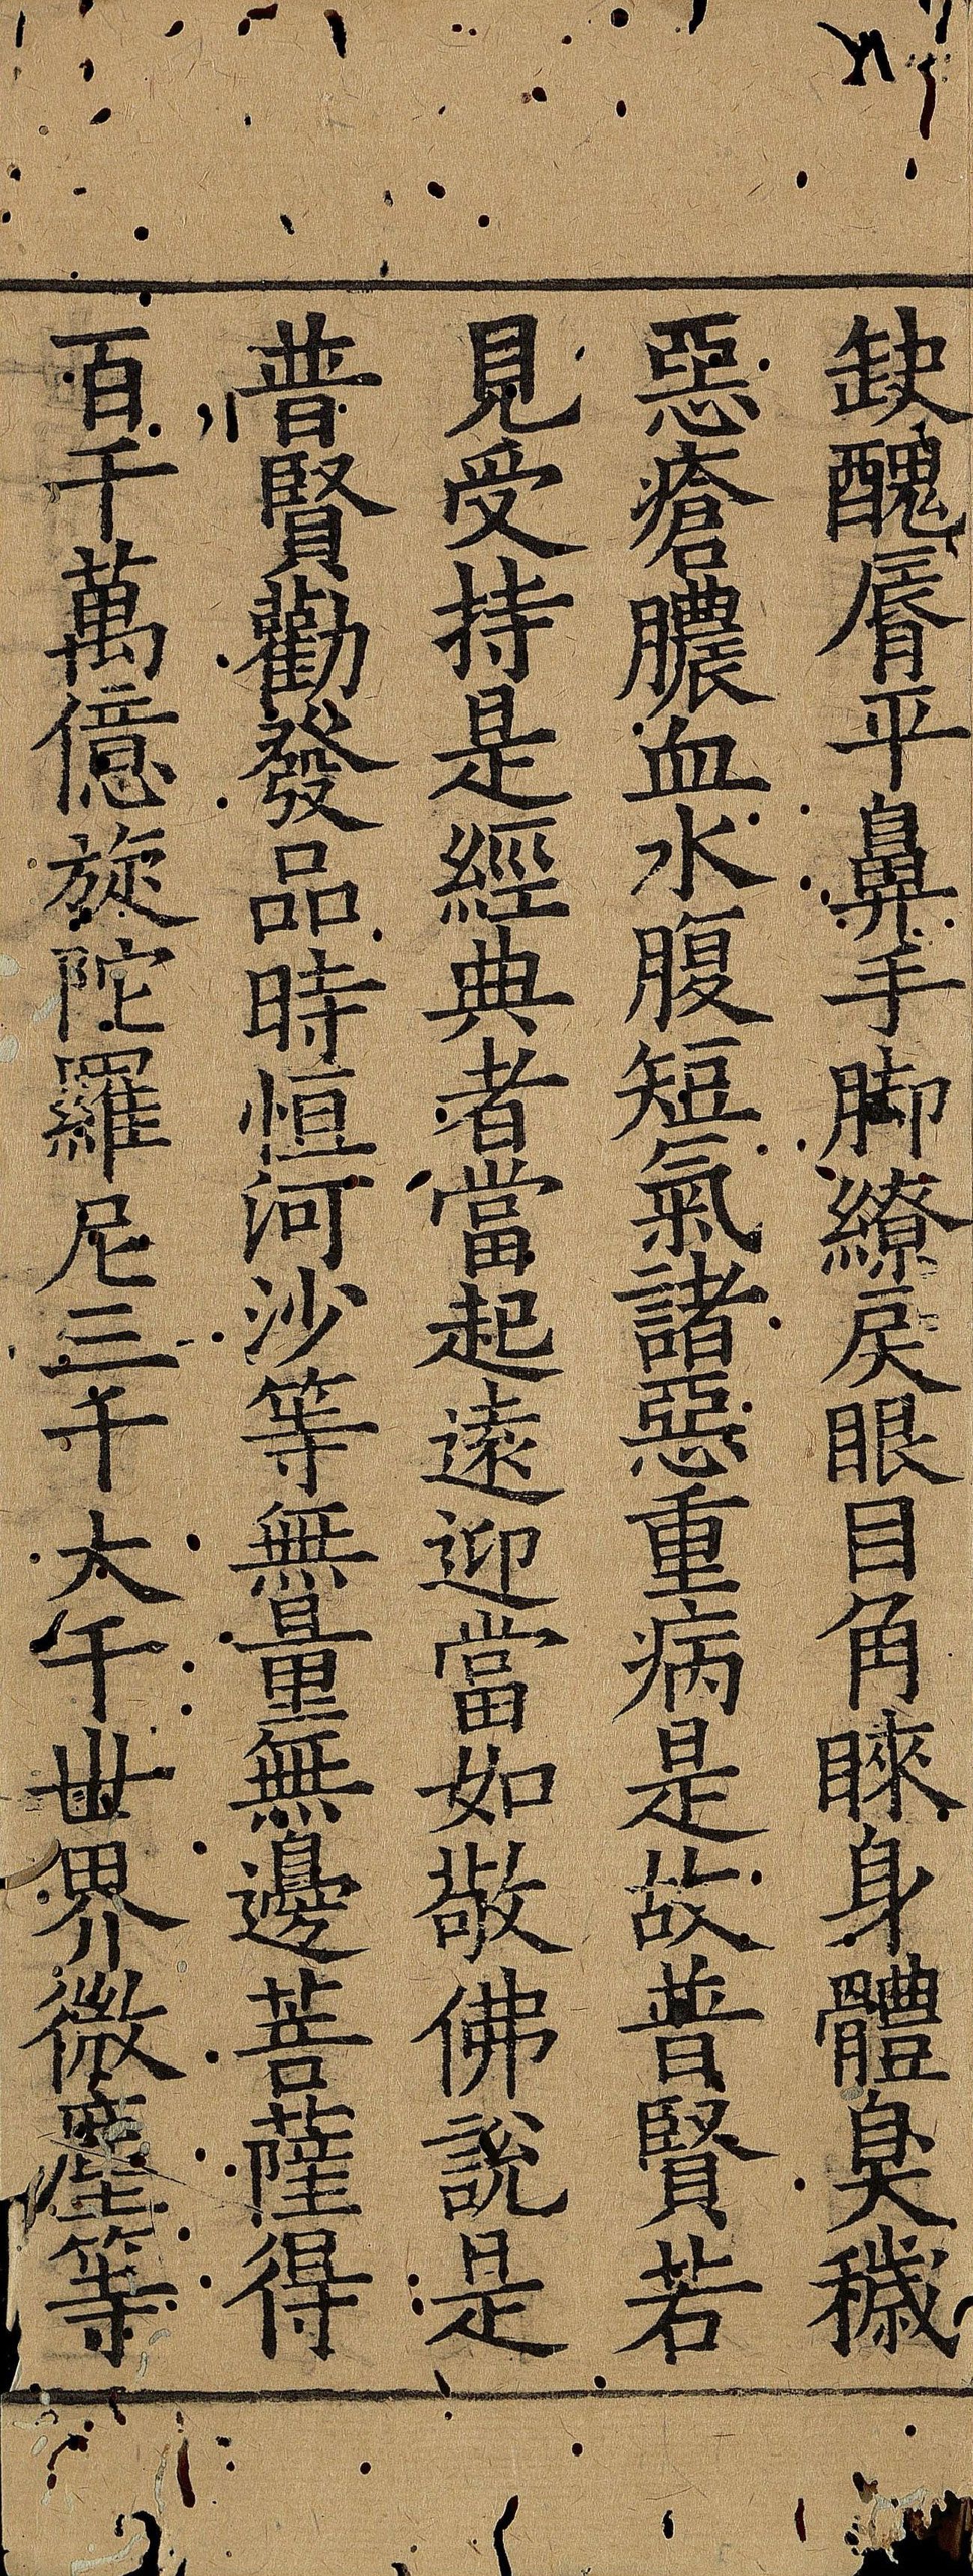 缺醜脣平鼻手脚繚戾眼目角睞身體臭穢
惡瘡膿血水腹短氣諸惡重病是故普賢若
見受持是經典者當起遠迎當如敬佛說是
普賢勸發品時恒河沙等無量無邊菩薩得
百千萬億旋陀羅尼三千大千世界微塵等